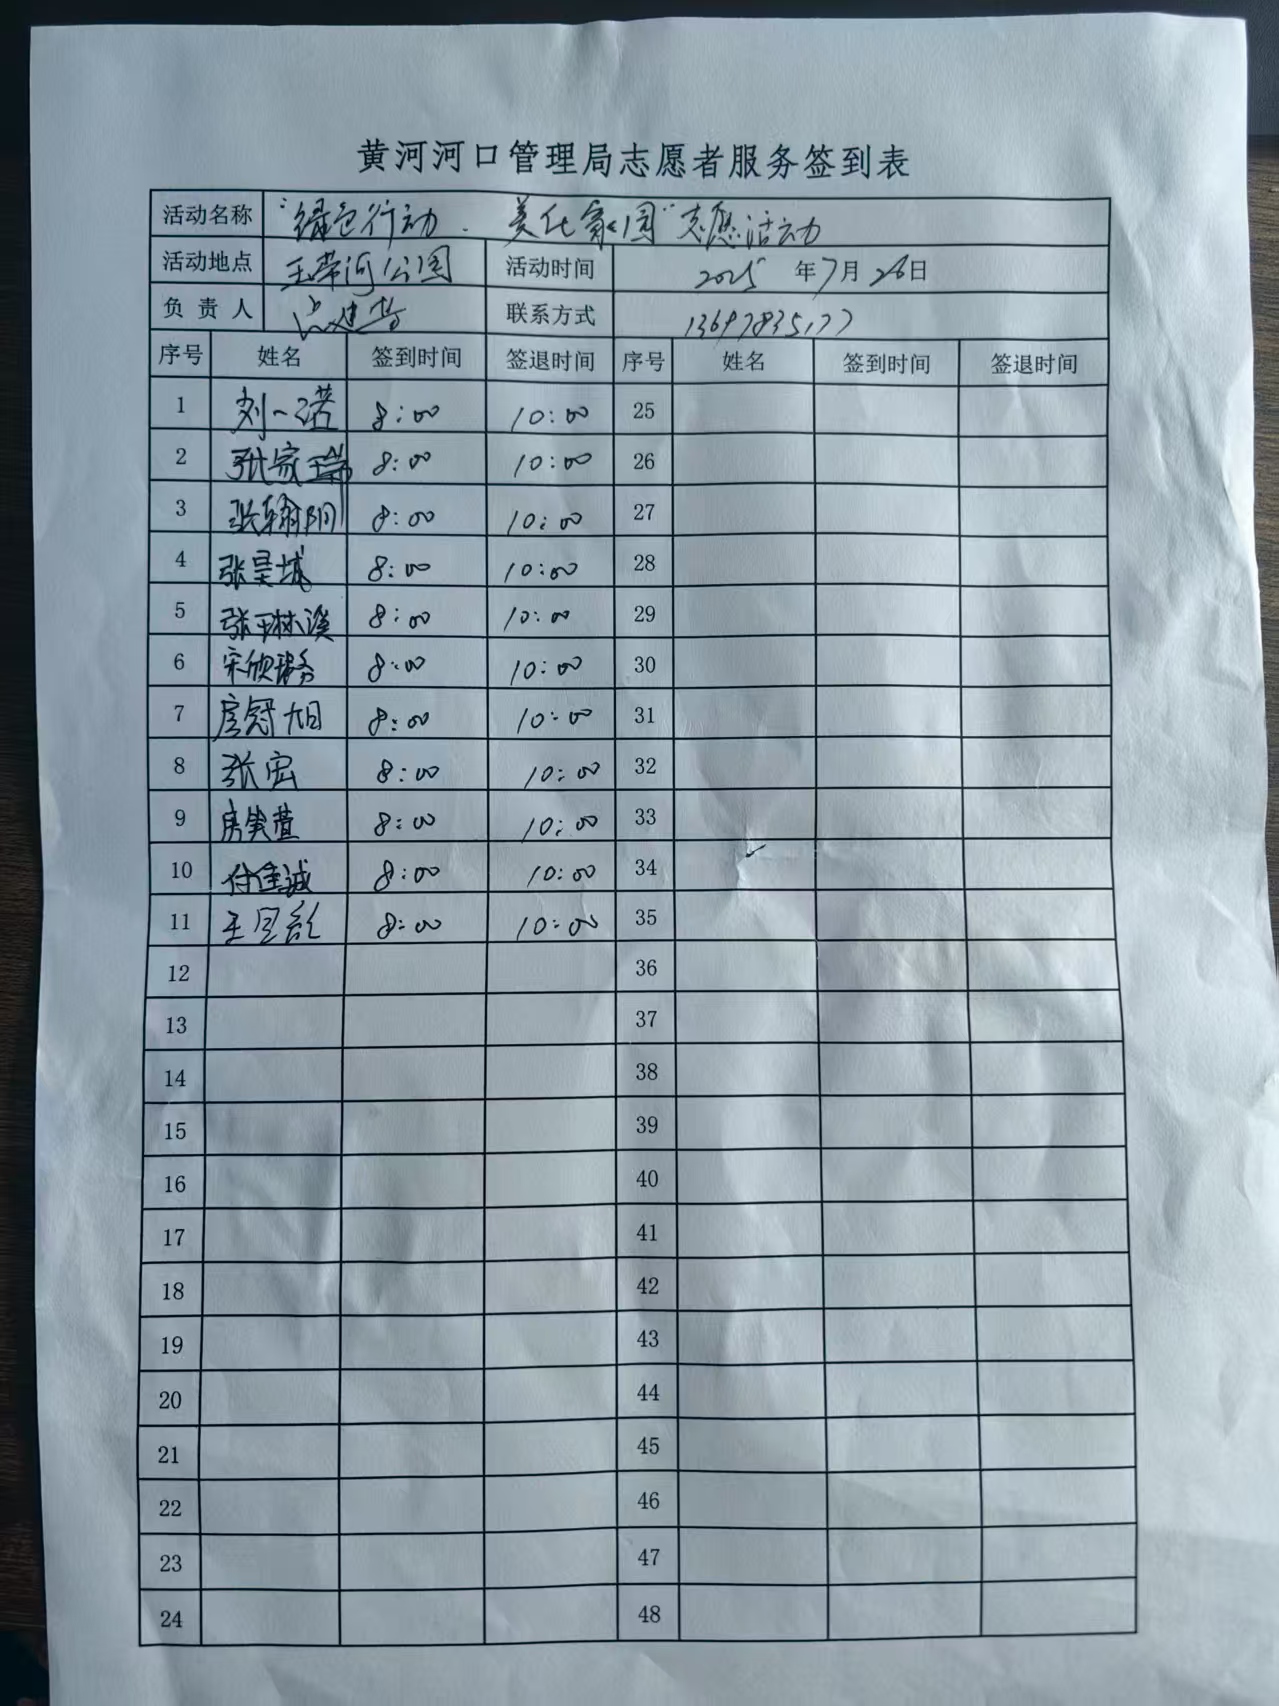 黄河河口管理局志愿者服务签到表
活动名称 "绿色行动、美化家园"志愿活动
活动地点 玉带河公园 活动时间 2025 年 7 月 26 日
负责人 联系方式 13697835177
序号 姓名 签到时间 签退时间 序号 姓名 签到时间 签退时间
1 刘一诺 8:00 10:00 25
2 张家瑞 8:00 10:00 26
3 张翰阳 8:00 10:00 27
4 张昊城 8:00 10:00 28
5 张琳溪 8:00 10:00 29
6 宋欣 8:00 10:00 30
7 房冠旭 8:00 10:00 31
8 张宏 8:00 10:00 32
9 房笑萱 8:00 10:00 33
10 付佳诚 8:00 10:00 34
11 王 8:00 10:00 35
12 36
13 37
14 38
15 39
16 40
17 41
18 42
19 43
20 44
21 45
22 46
23 47
24 48